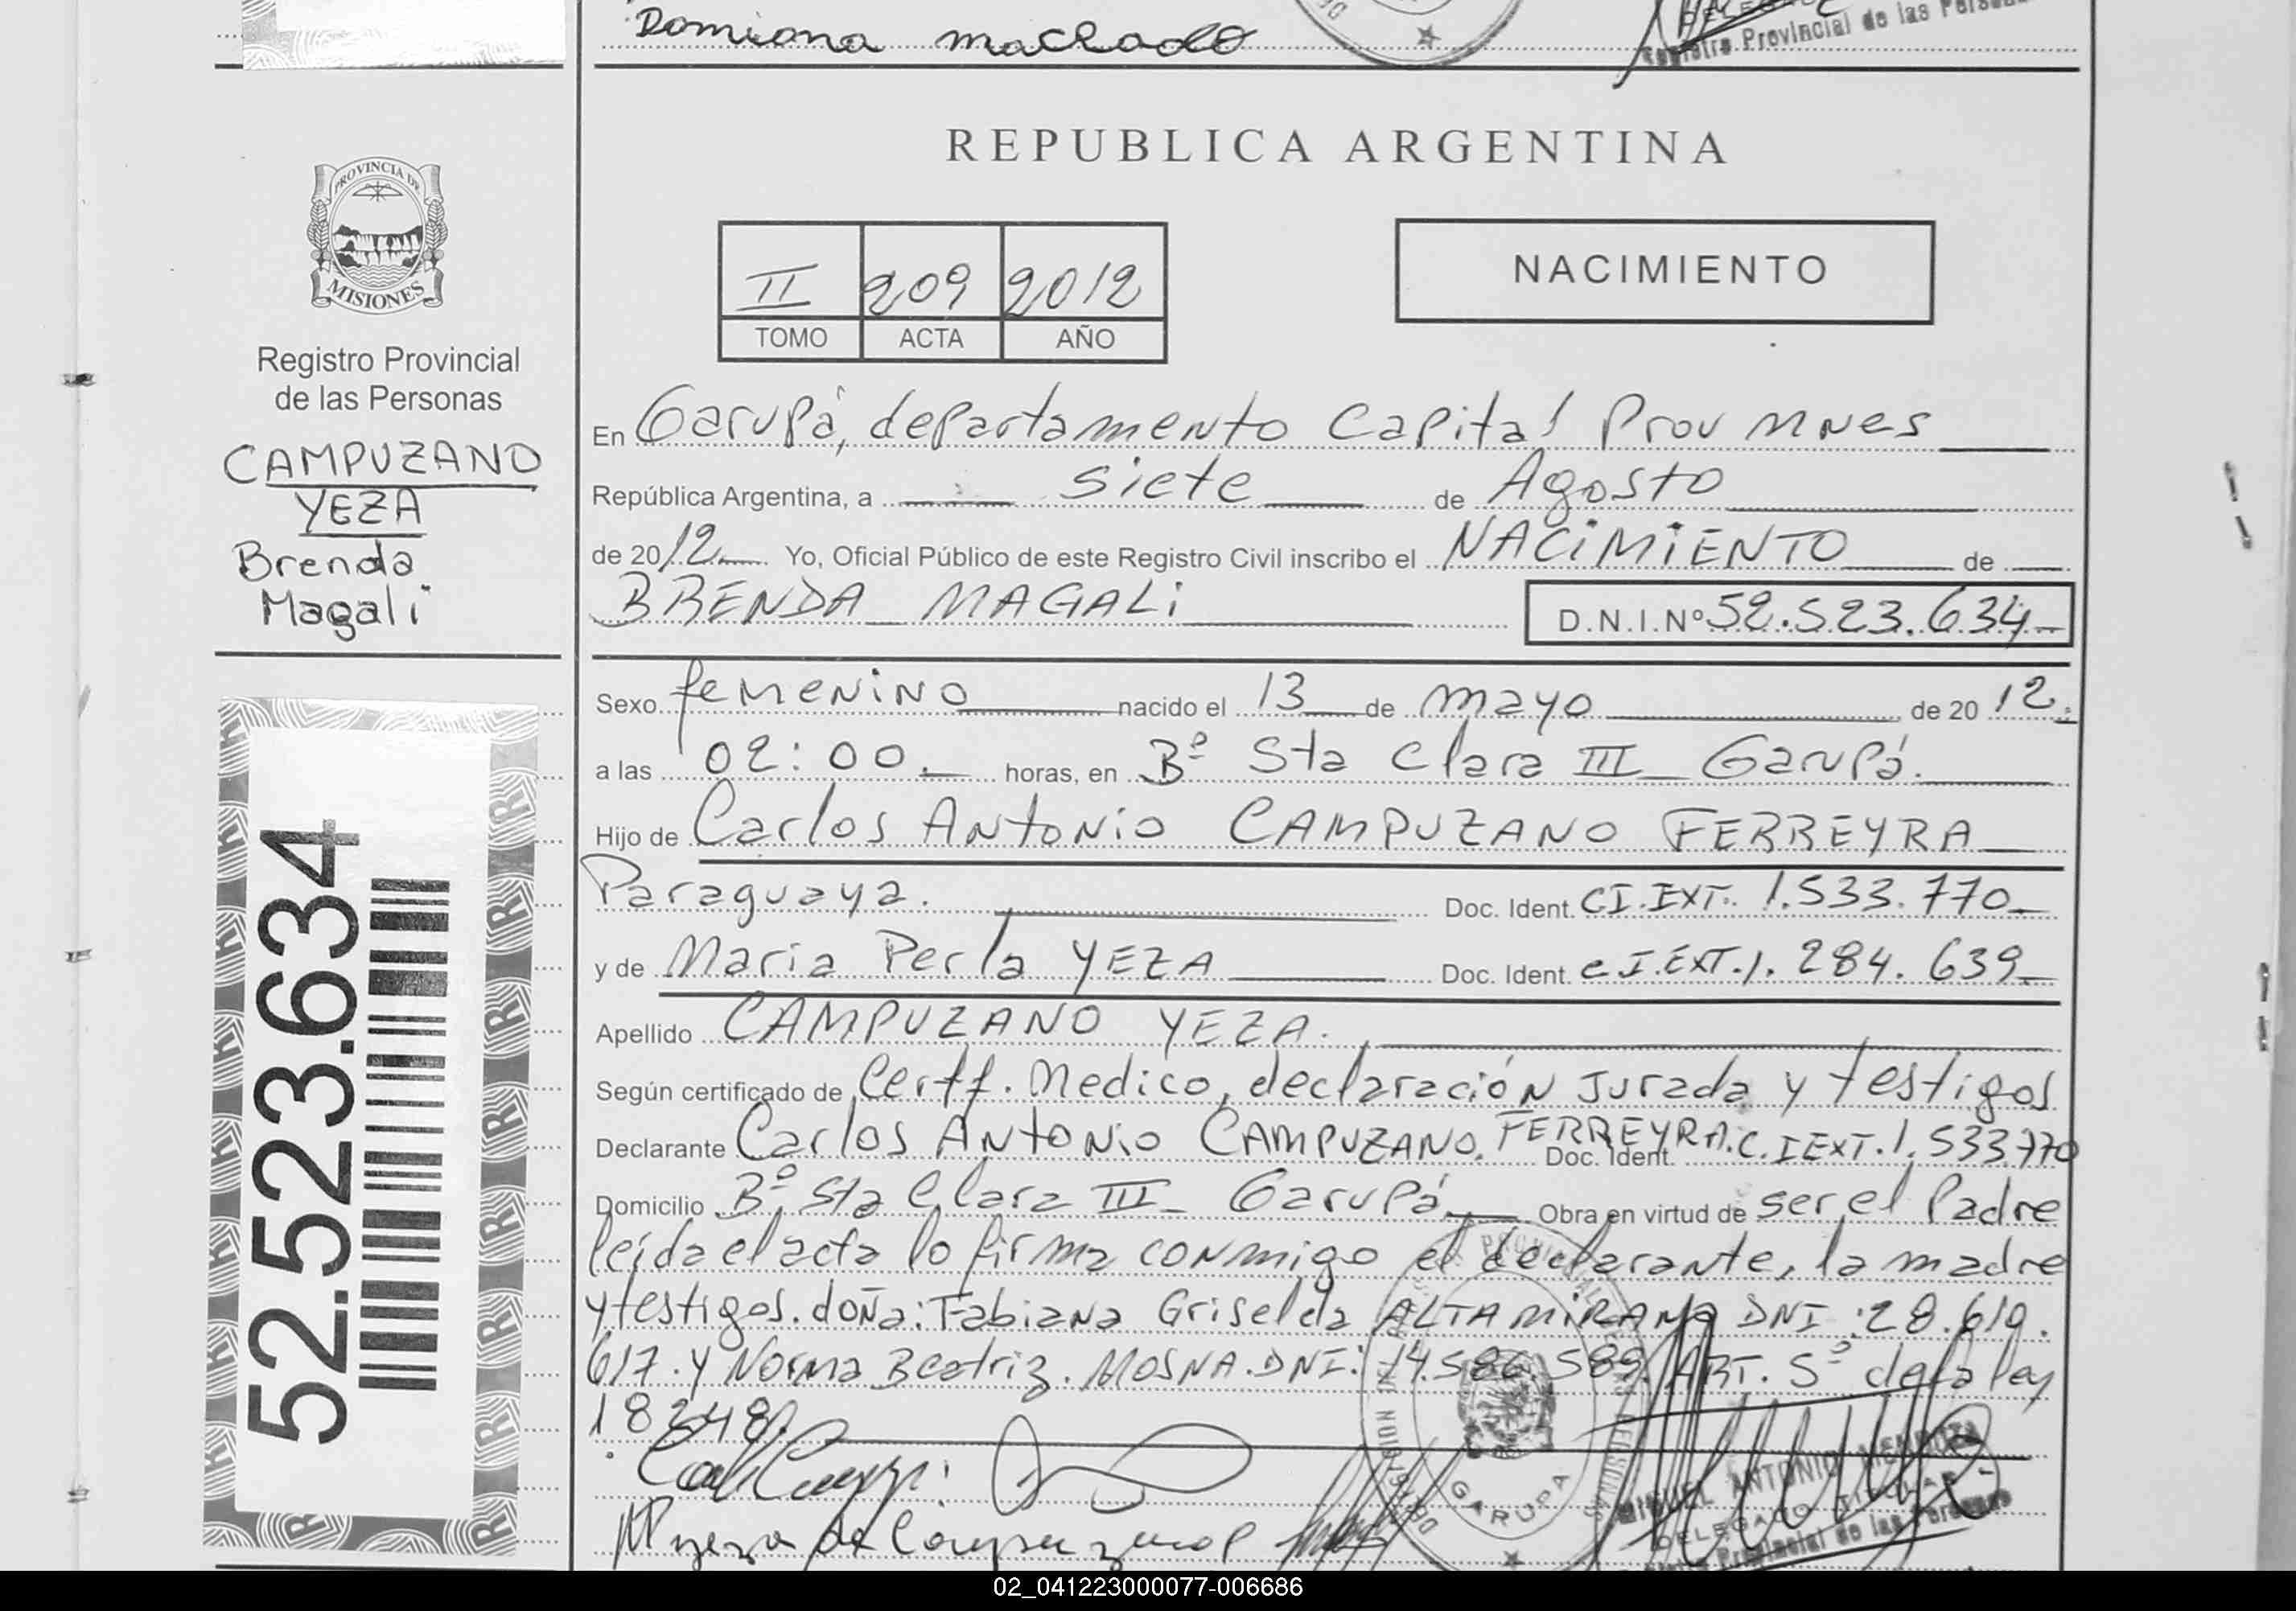 Domiana Machado
Registro Provincial de las Personas
PROVINCIA DE
MISIONES
Registro Provincial
de las Personas
CAMPUZANO
YEZA
Brenda
Magali
52.523.634
REPUBLICA ARGENTINA
II 209 2012
TOMO ACTA AÑO
NACIMIENTO
En Garupá, departamento Capital Prov Mnes
República Argentina, a siete de Agosto
de 2012 Yo, Oficial Público de este Registro Civil inscribo el NACIMIENTO de
BRENDA MAGALI D.N.I.Nº 52.523.634
Sexo femenino nacido el 13 de mayo de 2012.
a las 02:00. horas, en Bº Sta Clara III Garupá.
Hijo de Carlos Antonio CAMPUZANO FERREYRA
Paraguaya. Doc. Ident. CI.EXT. 1.533.770
y de Maria Perla YEZA Doc. Ident. CI.EXT.1.284.639
Apellido CAMPUZANO YEZA.
Según certificado de Certf. Medico, declaración Jurada y testigos
Declarante Carlos Antonio CAMPUZANO. FERREYRA. Doc. Ident. C.IEXT.1.533.770
Domicilio Bº Sta Clara III Garupá Obra en virtud de ser el Padre
leída el acta lo firma conmigo el declarante, la madre
y testigos. doña: Fabiana Griselda ALTAMIRANO DNI:28.619.
617. Y Norma Beatriz. MOSNA. DNI: 14.586.589. ART. 5º de la ley
18248.
GARUPA
MIGUEL ANTONIO MENDOZA
DELEGADO TITULAR
Provincial de las Personas
M yeza de Campuzano
02_041223000077-006686